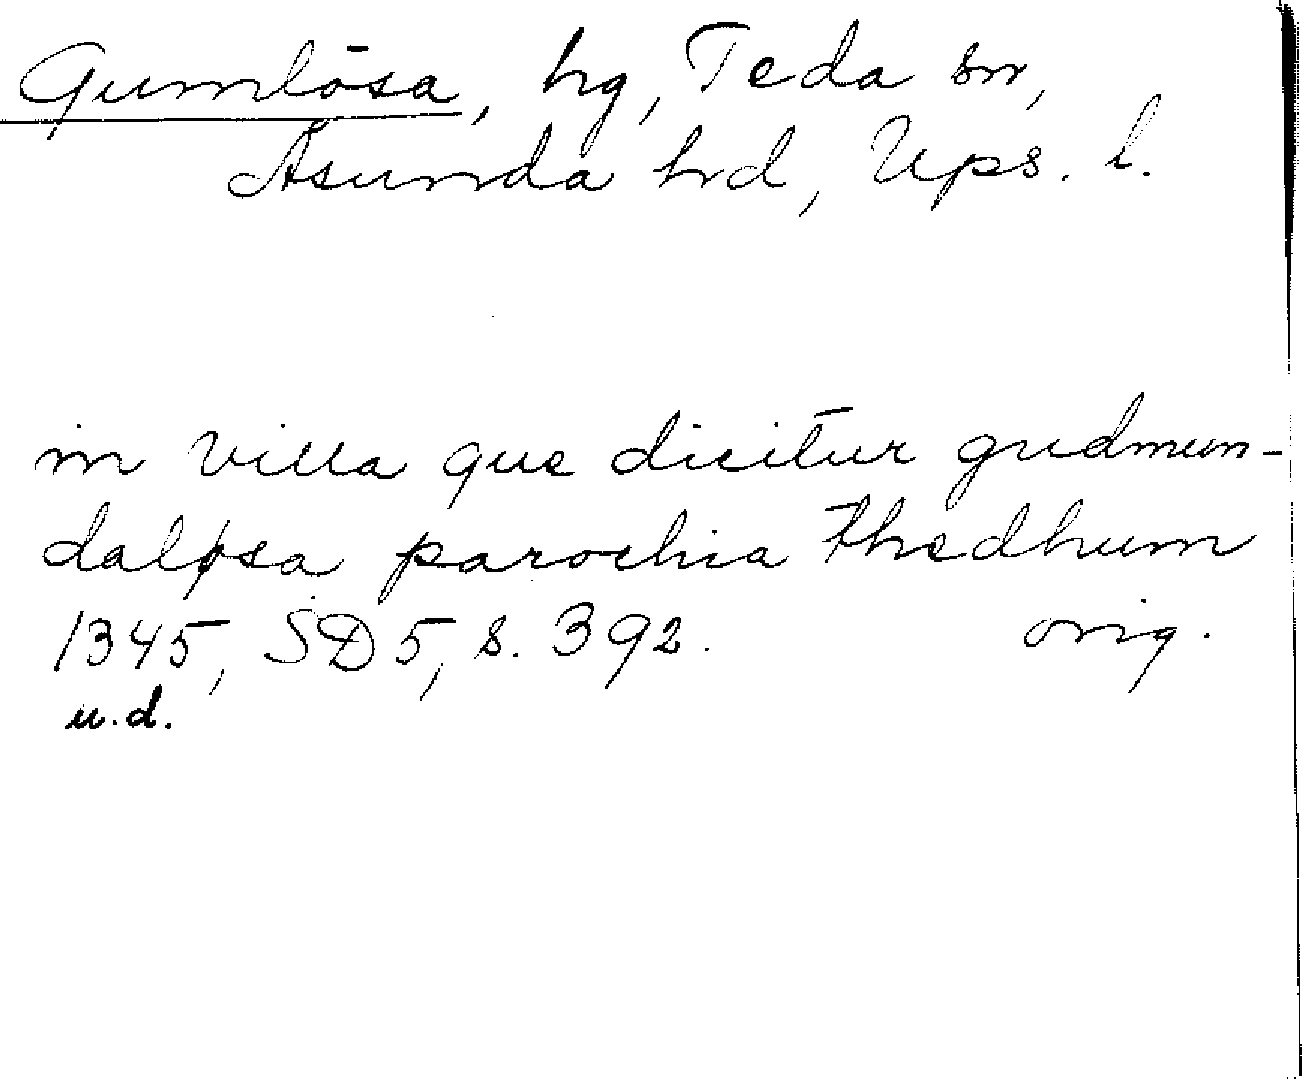 Gumlösa, hg, Teda sn,
Åsunda hd, Ups. l.
in villa que dicitur gudmun-
daløsa parochia thedhum
1345, SD 5, s. 392. orig.
u.d.